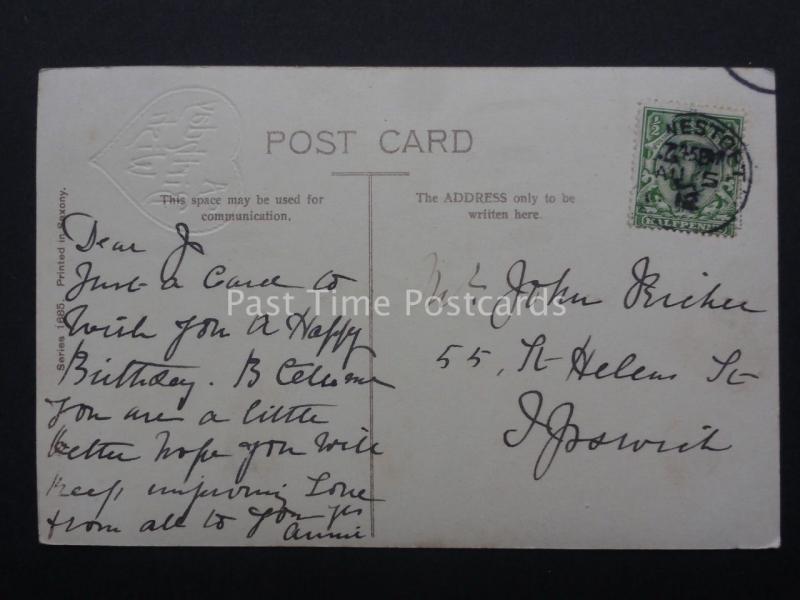 POST CARD
This space may be used for
communication.
The ADDRESS only to be
written here.
Series 1685. Printed in Saxony.
½
HALFPENNY
WESTOFT
AU 5
Dear Jo
Just a Card to
Wish you A Happy
Birthday. B
you are a little
better hope you Will
Keep improving Love
from all to you
Annie
Mr John Richer
55, St Helens St
Ipswich
Past Time Postcards